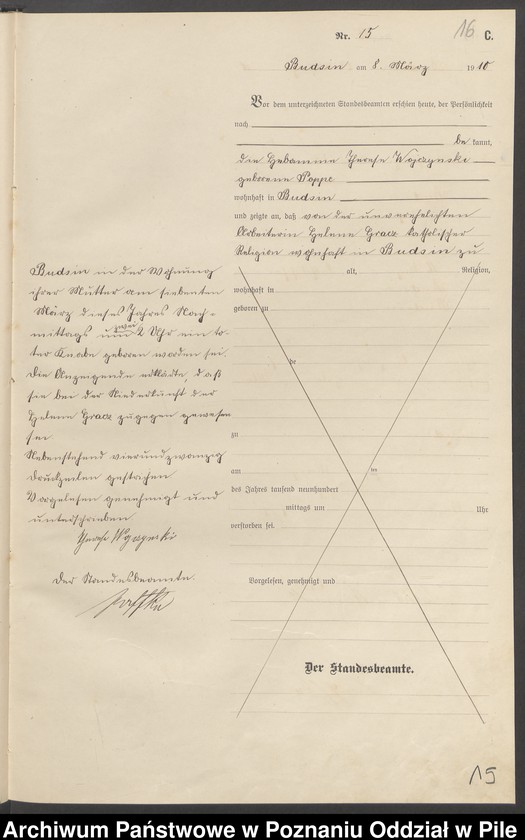 Nr. 15
16 C.
Budsin am 8. März 1910
Vor dem unterzeichneten Standesbeamten erschien heute, der Persönlichkeit
nach
be kannt,
die Hebamme Therese Wojczynski
geborene Poppe
wohnhaft in Budsin
und zeigte an, daß von der unverehelichten
Arbeiterin Helene Gracz katholischer
Religion wohnhaft in Budsin zu
Budsin in der Wohnung
ihrer Mutter am siebenten
März dieses Jahres Nach-
mittags um zwei Uhr ein to-
ter Knabe geboren worden sei.
Die Anzeigende erklärte, daß
sie bei der Niederkunft der
Helene Gracz zugegen gewesen
sei
Nebenstehend vierundzwanzig
Druckzeilen gestrichen
Vorgelesen genehmigt und
unterschrieben
Der Standesbeamte.
alt, Religion,
wohnhaft in
geboren zu
be
zu
am ten
des Jahres tausend neunhundert
mittags um Uhr
verstorben sei.
Vorgelesen, genehmigt und
Der Standesbeamte.
15
Archiwum Państwowe w Poznaniu Oddział w Pile